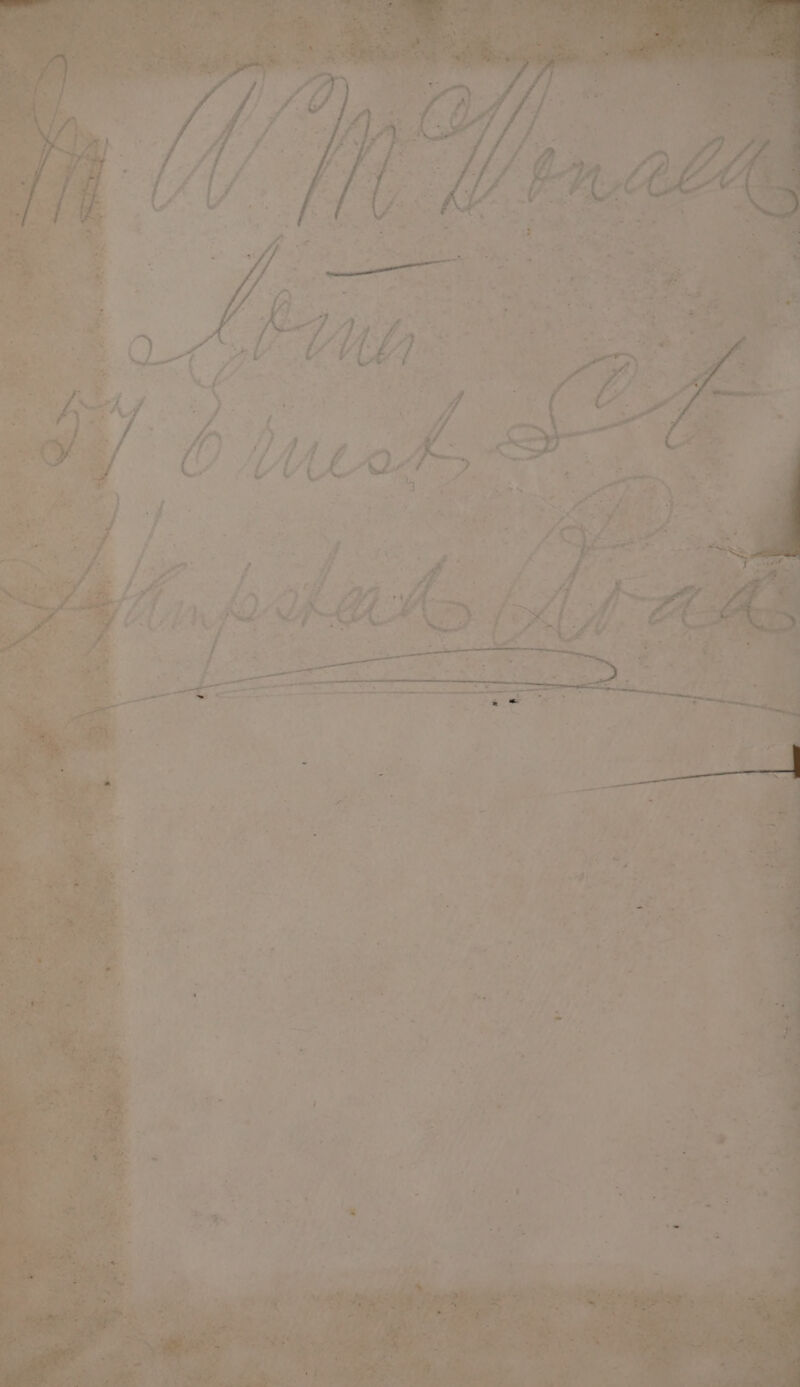 Mr A McDonald
57 Ernest St
Hampstead Road